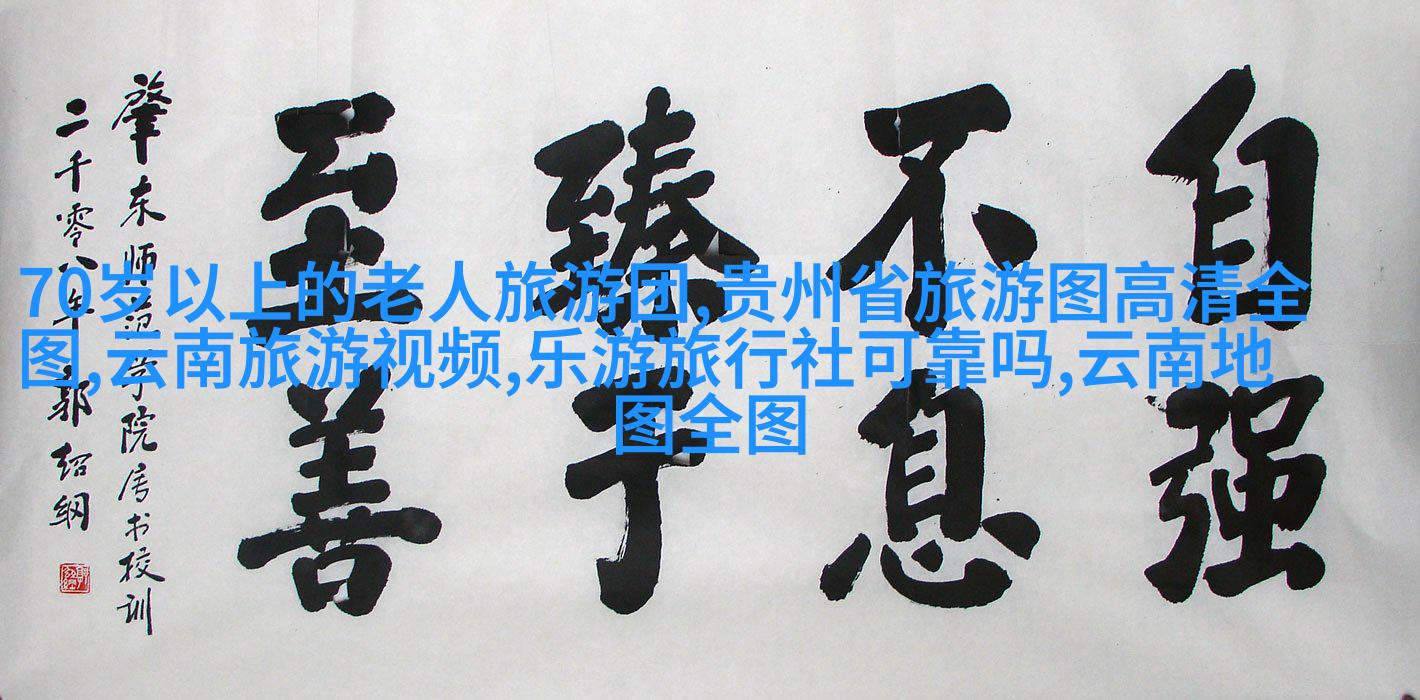 70岁以上的老人旅游团,贵州省旅游图高清全
图,云南旅游视频,乐游旅行社可靠吗,云南地
图全图
自强
不息
臻于
至善
肇东师范学院属书校训
二千零八年郭绍纲